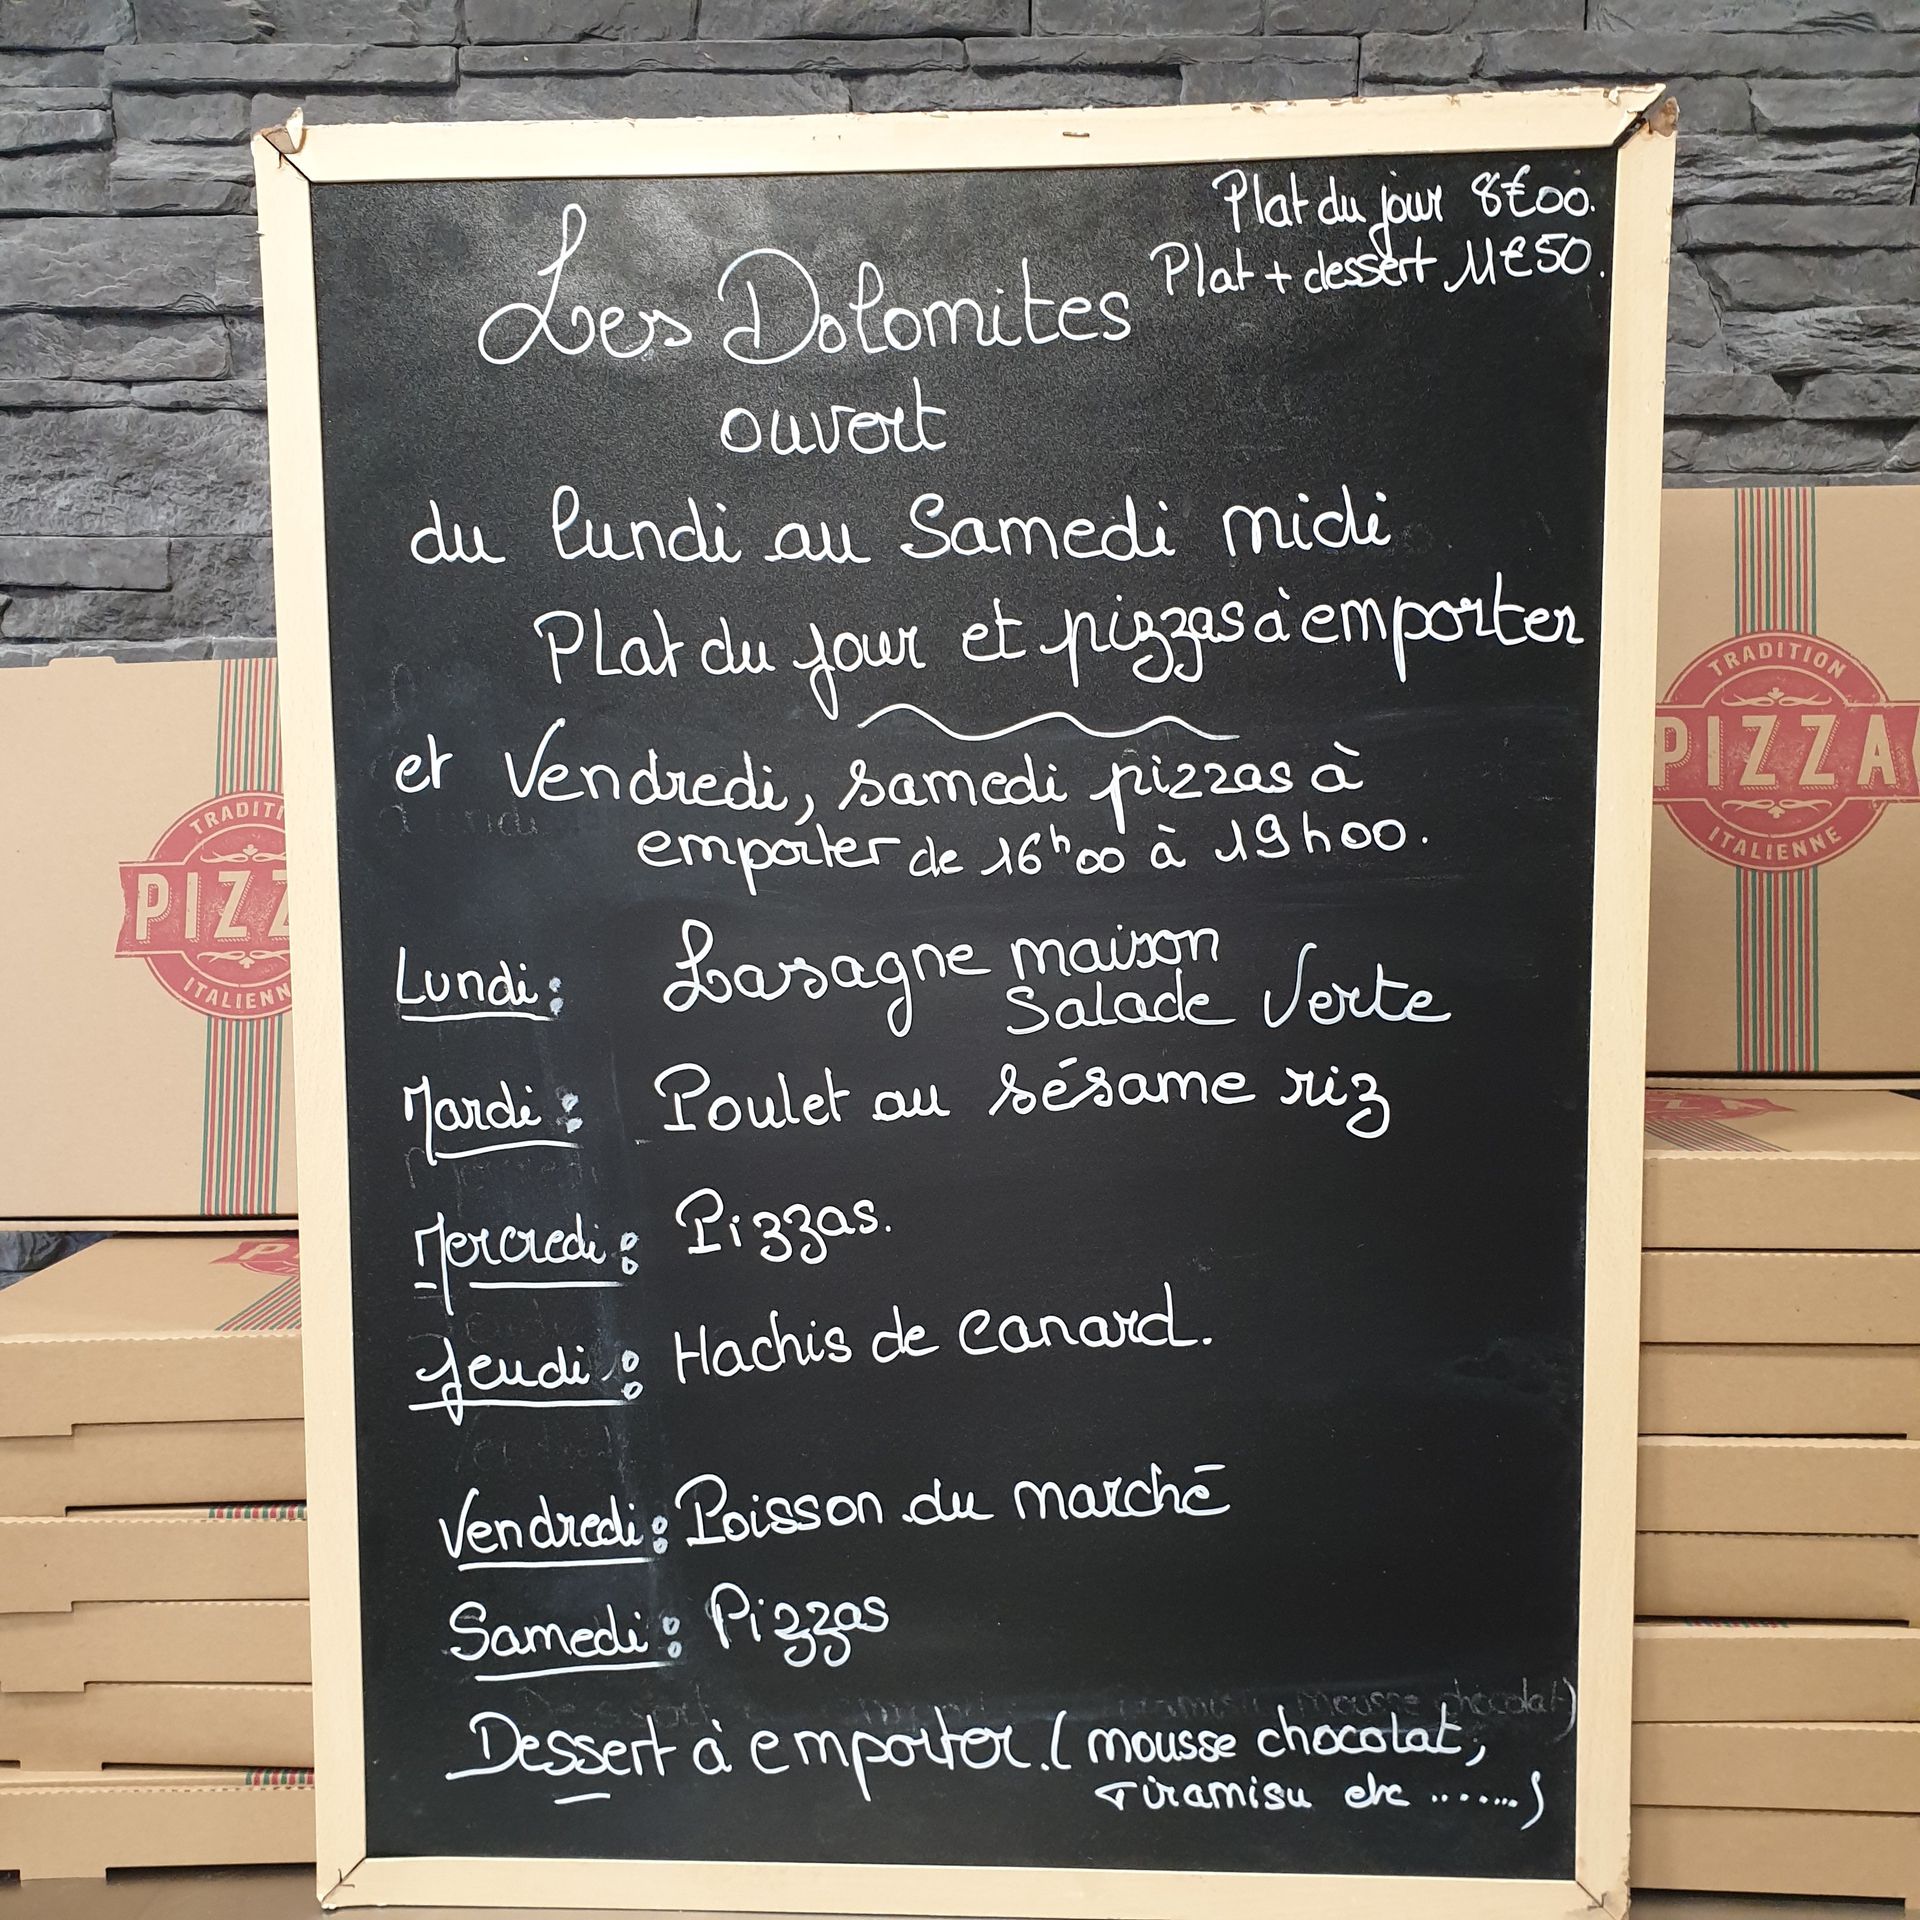 Plat du jour 8€00.
Plat + dessert 11€50.
Les Dolomites
ouvert
du lundi au Samedi midi
Plat du jour et pizzas à emporter
et Vendredi, samedi pizzas à
emporter de 16h00 à 19h00.
Lundi : Lasagne maison
Salade Verte
Mardi : Poulet au sésame riz
Mercredi : Pizzas.
Jeudi : Hachis de canard.
Vendredi : Poisson du marché
Samedi : Pizzas
Dessert à emporter. ( mousse chocolat,
Tiramisu etc .......)
TRADITI
PIZZ
ITALIENN
TRADITION
PIZZA
ITALIENNE